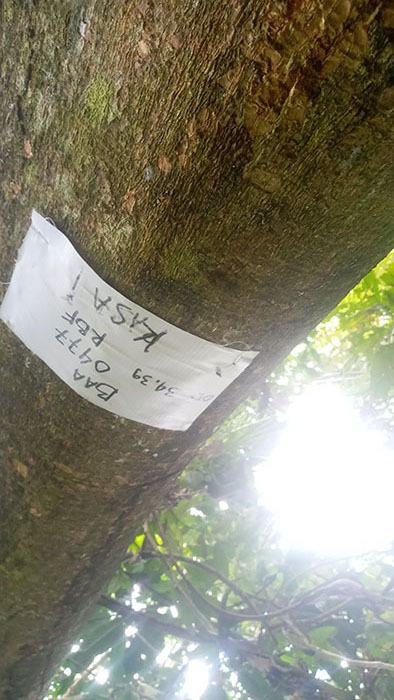 BAA
0477
RBF
KASAi
34,39